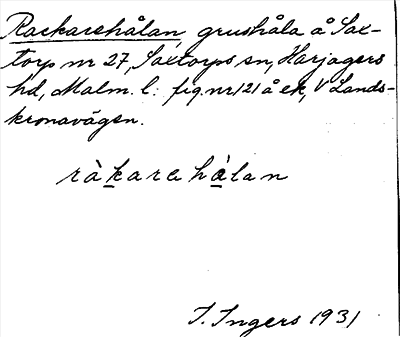 Rackarehålan, grushåla å Sax-
torp nr 27, Saxtorps sn, Harjagers
hd, Malm. l: fig. nr 121 å ek, V Lands-
kronavägen.
ràkarehàlan
I. Ingers 1931